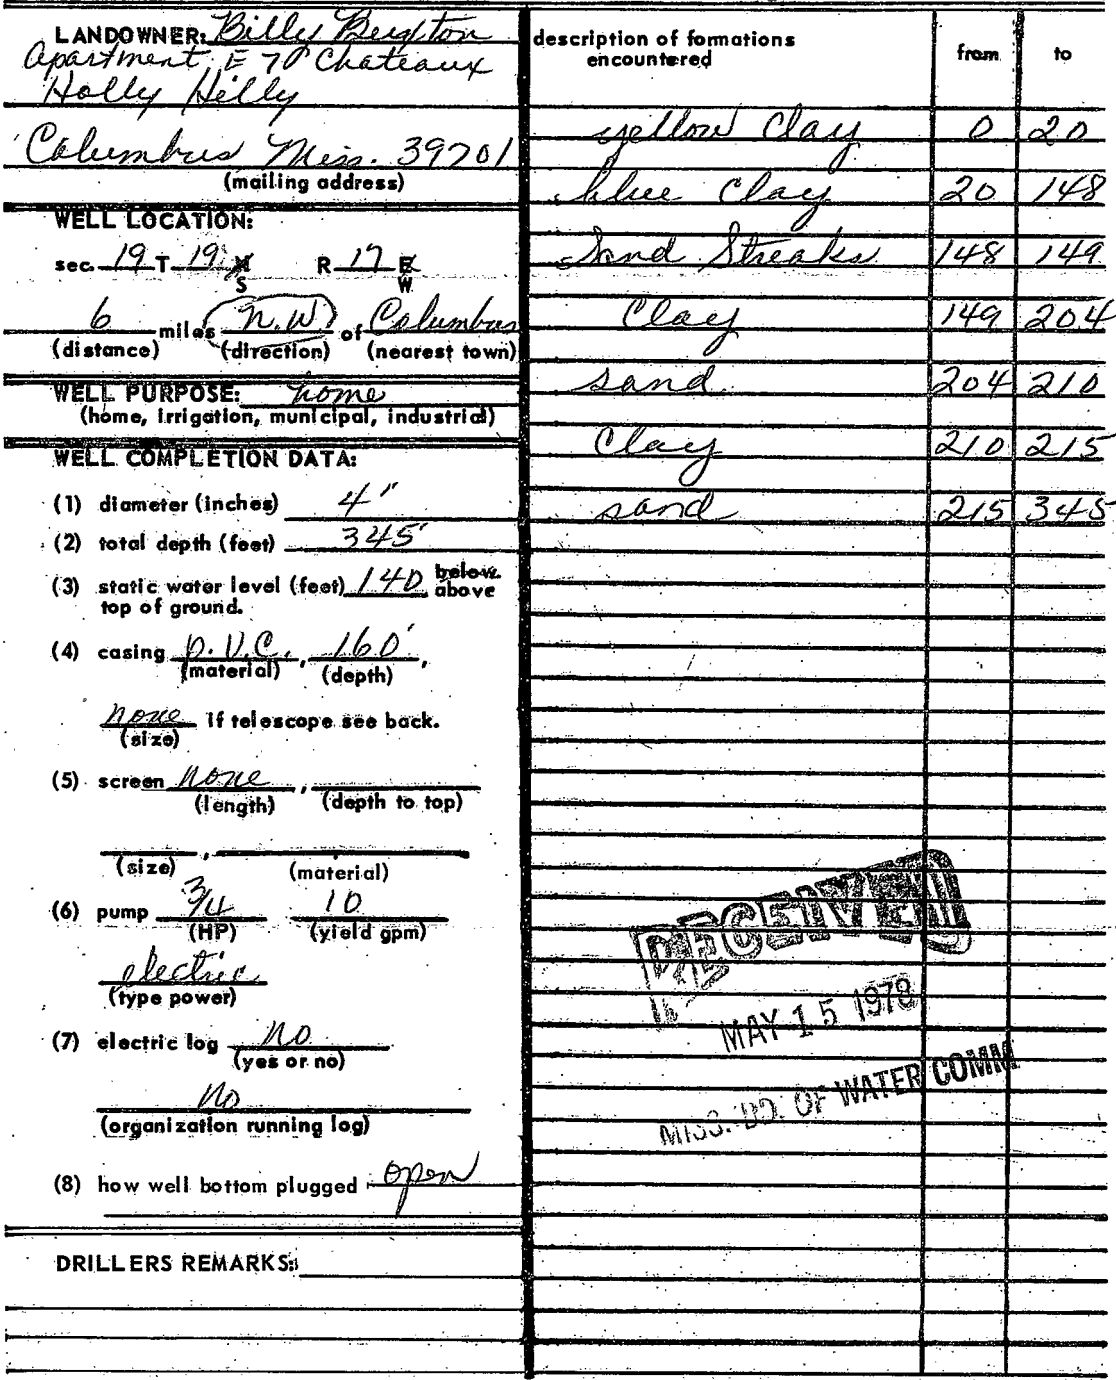 LANDOWNER: Billy
Apartment E 70 Chateaux
Holly Hilly
Columbus Miss. 39701
(mailing address)
WELL LOCATION:
sec. 19 T 19 N R 17 E
S W
6 miles N.W of Columbus
(distance) (direction) (nearest town)
WELL PURPOSE: home
(home, irrigation, municipal, industrial)
WELL COMPLETION DATA:
(1) diameter (inches) 4"
(2) total depth (feet) 345'
(3) static water level (feet) 140 below
above
top of ground.
(4) casing P.V.C., 160',
(material) (depth)
none if telescope see back.
(size)
(5) screen none,
(length) (depth to top)
,
(size) (material)
(6) pump 3/4 10
(HP) (yield gpm)
electric
(type power)
(7) electric log no
(yes or no)
No
(organization running log)
(8) how well bottom plugged open
DRILLERS REMARKS:
description of formations from to
encountered
yellow Clay 0 20
blue Clay 20 148
Sand Streaks 148 149
Clay 149 204
sand 204 210
Clay 210 215
sand 215 345
RECEIVED
MAY 15 1978
MISS. BD. OF WATER COMM